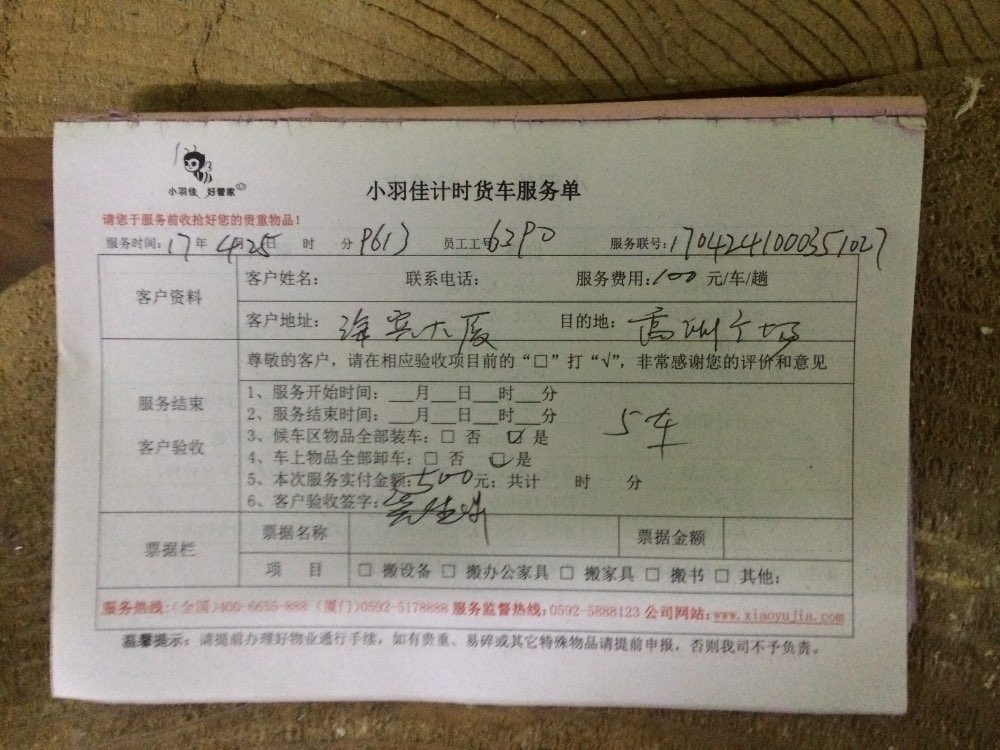 小羽佳 好管家
小羽佳计时货车服务单
请您于服务前收拾好您的贵重物品！
服务时间：17年 4月25日 时 分 P613 员工工号6290 服务联号：1704241000351027
客户资料
客户姓名： 联系电话： 服务费用：100 元/车/趟
客户地址： 海宾大厦 目的地：
服务结束
客户验收
尊敬的客户，请在相应验收项目前的“□”打“√”，非常感谢您的评价和意见
1、服务开始时间：___月___日___时___分
2、服务结束时间：___月___日___时___分
3、候车区物品全部装车：□ 否 ☑ 是
4、车上物品全部卸车：□ 否 ☑是
5、本次服务实付金额：500元；共计 时 分
6、客户验收签字：
5车
票据栏
票据名称 票据金额
项 目 □ 搬设备 □ 搬办公家具 □ 搬家具 □ 搬书 □ 其他：
服务热线：(全国)400-6655-888 (厦门)0592-5178888 服务监督热线：0592-5888123 公司网站：www.xiaoyujia.com
温馨提示：请提前办理好物业通行手续，如有贵重、易碎或其它特殊物品请提前申报，否则我司不予负责。